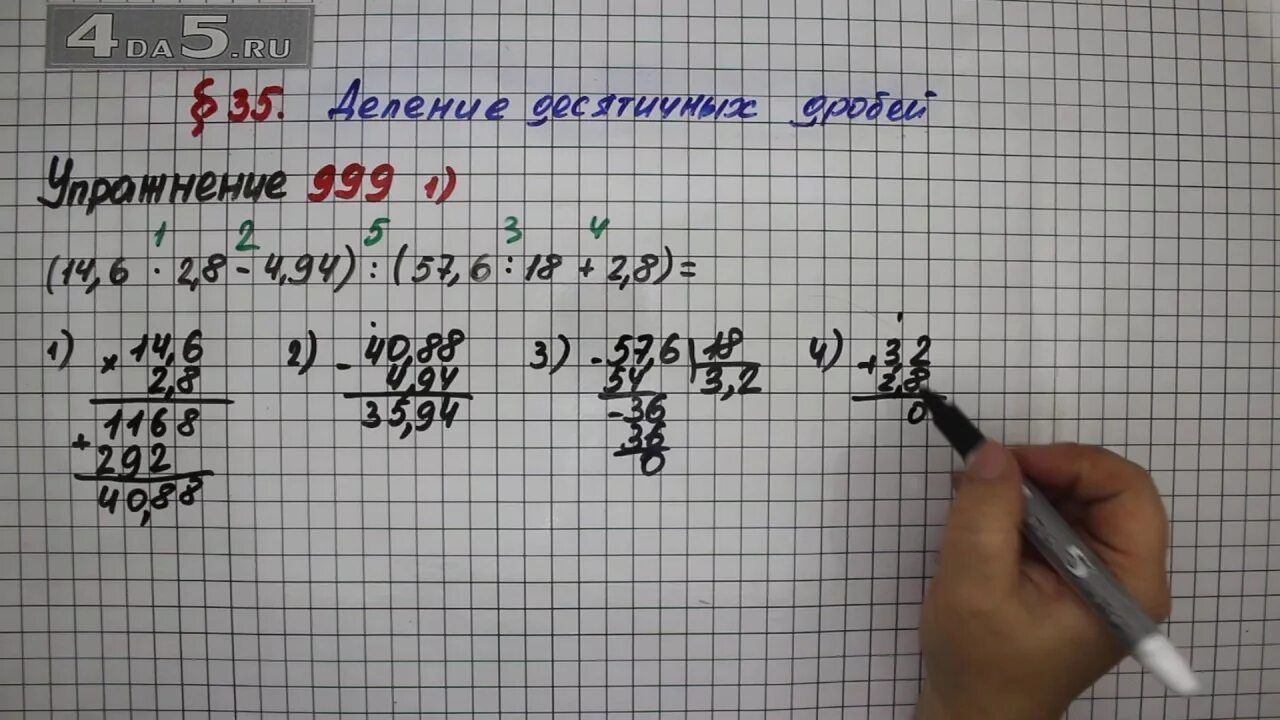 4DA5.RU
§ 35. Деление десятичных дробей
Упражнение 999 1)
1 2 5 3 4
(14,6 · 2,8 - 4,94) : (57,6 : 18 + 2,8) =
1) × 14,6
2,8
1168
+ 292
40,88
2) - 40,88
4,94
35,94
3) - 57,6 | 18
54 3,2
- 36
36
0
4) + 3,2
2,8
0
5